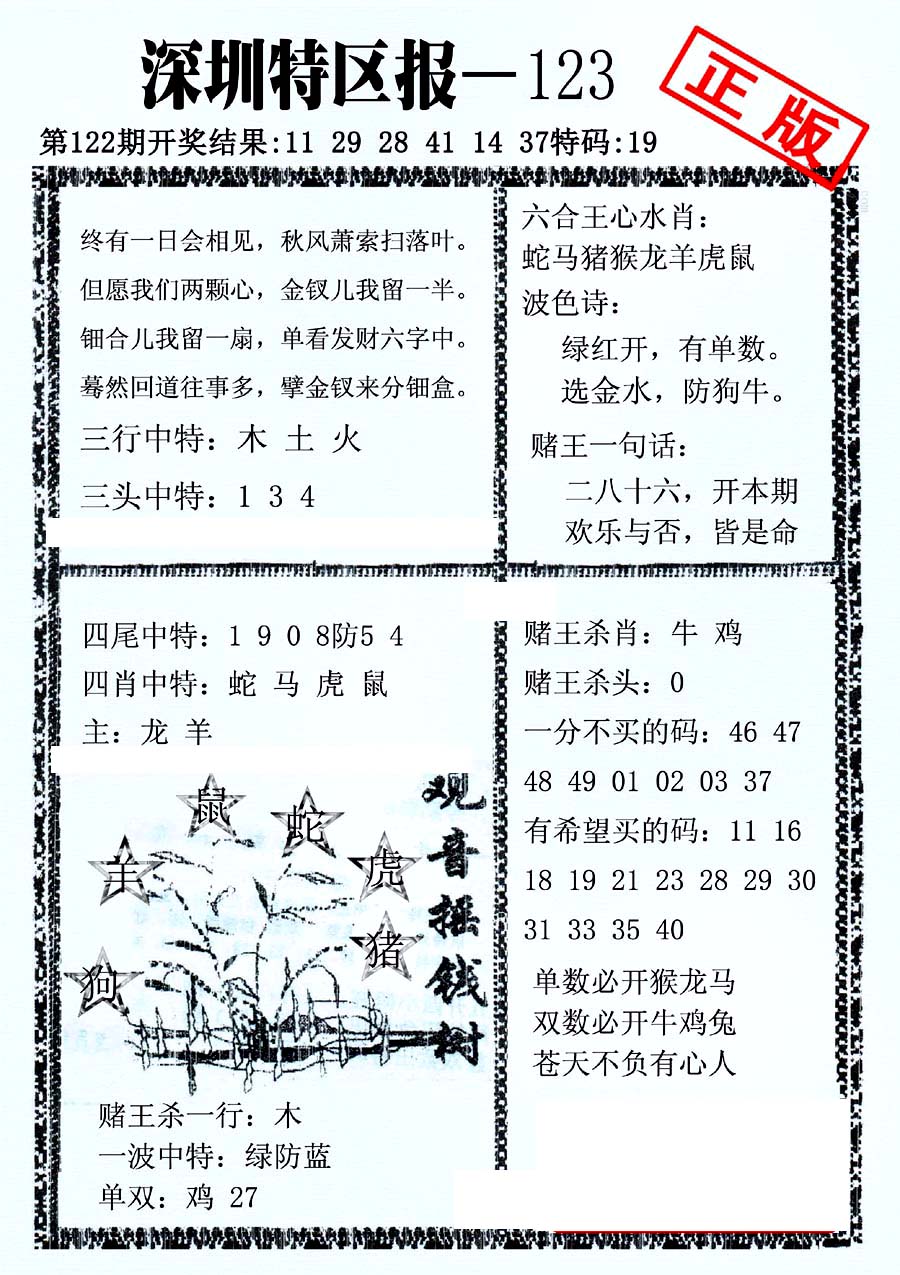 深圳特区报—123
正版
第122期开奖结果:11 29 28 41 14 37特码:19
终有一日会相见，秋风萧索扫落叶。
但愿我们两颗心，金钗儿我留一半。
钿合儿我留一扇，单看发财六字中。
蓦然回道往事多，擘金钗来分钿盒。
三行中特：木 土 火
三头中特：1 3 4
六合王心水肖：
蛇马猪猴龙羊虎鼠
波色诗：
绿红开，有单数。
选金水，防狗牛。
赌王一句话：
二八十六，开本期
欢乐与否，皆是命
四尾中特：1 9 0 8防5 4
四肖中特：蛇 马 虎 鼠
主：龙 羊
观音摇钱树
鼠
蛇
羊
虎
猪
狗
赌王杀一行：木
一波中特：绿防蓝
单双：鸡 27
赌王杀肖：牛 鸡
赌王杀头：0
一分不买的码：46 47
48 49 01 02 03 37
有希望买的码：11 16
18 19 21 23 28 29 30
31 33 35 40
单数必开猴龙马
双数必开牛鸡兔
苍天不负有心人